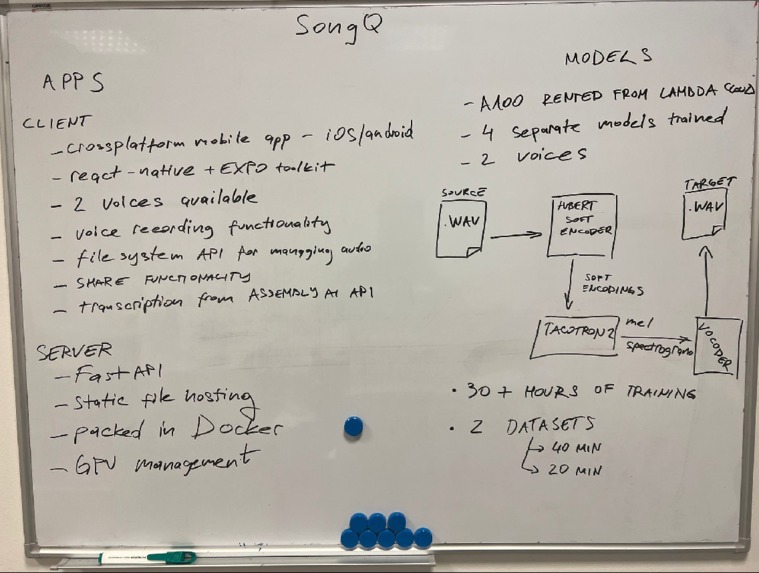 SongQ
APPS
CLIENT
- crossplatform mobile app - iOS/android
- react-native + EXPO toolkit
- 2 voices available
- voice recording functionality
- file system API for managing audio
- SHARE FUNCTIONALITY
- transcription from ASSEMBLY AI API
SERVER
- FastAPI
- static file hosting
- packed in Docker
- GPU management
MODELS
- A100 RENTED FROM LAMBDA CLOUD
- 4 separate models trained
- 2 voices
SOURCE
.WAV
HUBERT
SOFT
ENCODER
SOFT
ENCODINGS
TACOTRON2
mel
spectrogram
VOCODER
TARGET
.WAV
• 30+ HOURS OF TRAINING
• 2 DATASETS
↳ 40 MIN
↳ 20 MIN